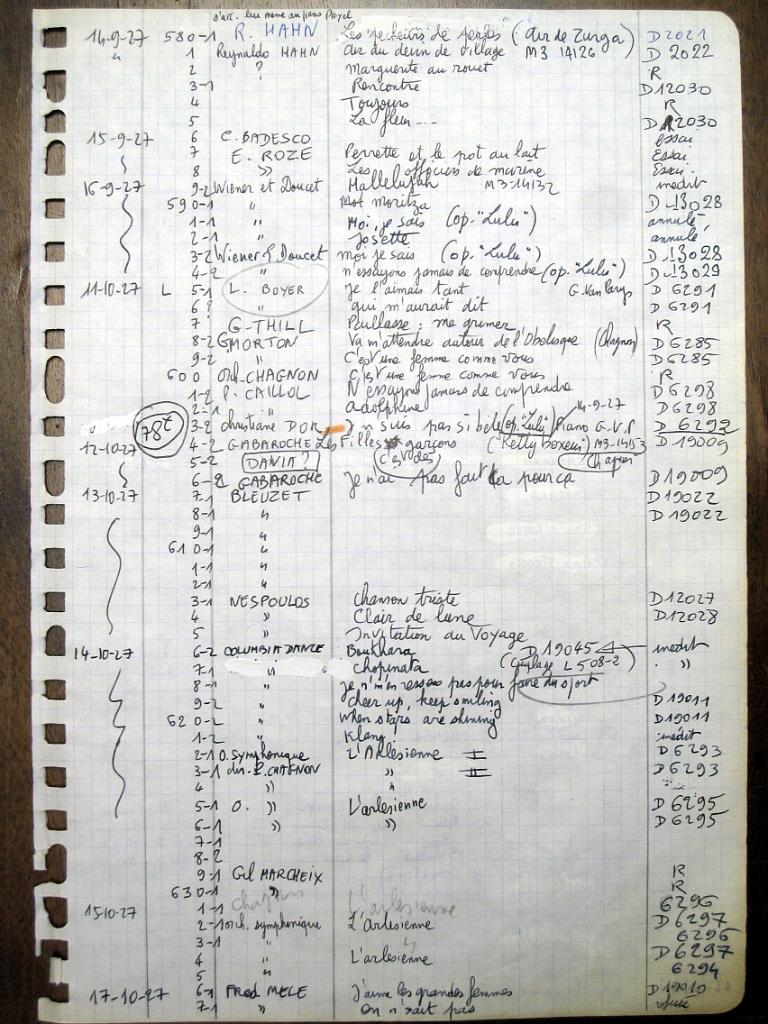 s'acc. lui même au piano Pleyel
14-9-27 580-1 R. HAHN Les pecheurs de perles (Air de Zurga) D 2021
" 1 Reynaldo HAHN air du devin de village M3 14126 D 2022
2 ? Marguerite au rouet R
3-1 Rencontre D12030
4 Toujours R
5 La fleur --- D 12030
15-9-27 6 C. BADESCO essai
7 E. ROZE Perrette et le pot au lait Essai
8 " Les officiers de marine Essai
16-9-27 9-2 Wiener et Doucet Hallelujah M3-14132 inedit
590-1 " moritza D-13028
1-1 " Moi, je sais (op. "Lulu") annulé
2-1 " Josette annulé
3-2 Wiener & Doucet moi je sais (op. "Lulu") D-13028
4-2 " n'essayons jamais de comprendre (op. "Lulu") D-13029
11-10-27 L 5-1 L. BOYER Je l'aimais tant G. Van Parys D 6291
6? " qui m'aurait dit D 6291
7 G. THILL Paillasse : me grimer R
8-2 G MORTON Va m'attendre autour de l'Obelisque (Chagnon) D 6285
9-2 " C'est une femme comme vous D 6285
600 Orch. CHAGNON C'est une femme comme vous R
1-2 P. CAILLOL N'essayons jamais de comprendre D 6298
2-1 " adolphine D 6298
78t 3-2 christiane DOR J'n suis pas si bête (op. "Lulu") Piano G.V.P. 14-9-27 D 6292
12-10-27 4-2 GABAROCHE Les Filles garçons (Kelly Boxeur) M3-14153 D 19009
5-2 DANIA? (c'est des) Chapers
6-2 GABAROCHE Je n'ai pas fait ça pour ça D 19009
13-10-27 7-1 BLEUZET D 19022
8-1 " D 19022
9-1 "
610-1 "
1-1 "
2-1 "
3-1 NESPOULOS Chanson triste D12027
4 " Clair de lune D12028
5 " Invitation au Voyage
14-10-27 6-2 COLUMBIA DANCE Boukhara D 19045 inedit
7-1 " Chopinata (Couplage L 508-2) "
8-1 " je n'm'interesse pas pour faire du sport
9-2 " cheer up, keep smiling D 19011
620-2 " When stars are shining D 19011
1-2 " Klang! inedit
2-1 O. Symphonique L'Arlésienne I D 6293
3-1 dir. P. CHAGNON " II D 6293
4 "
5-1 O. " L'arlesienne D 6295
6-1 " " D 6295
7-1
8-2
9-1 Gil MARCHEIX R
630-1 " R
1-1 L'arlesienne 6296
15-10-27 2-1 orch. symphonique L'Arlesienne D 6297
3-1 " " 6296
4 " L'arlesienne D 6297
5 " 6294
17-10-27 6-1 FRED MELE J'aime les grandes femmes D 19010
7-1 " on n'sait pas refusé